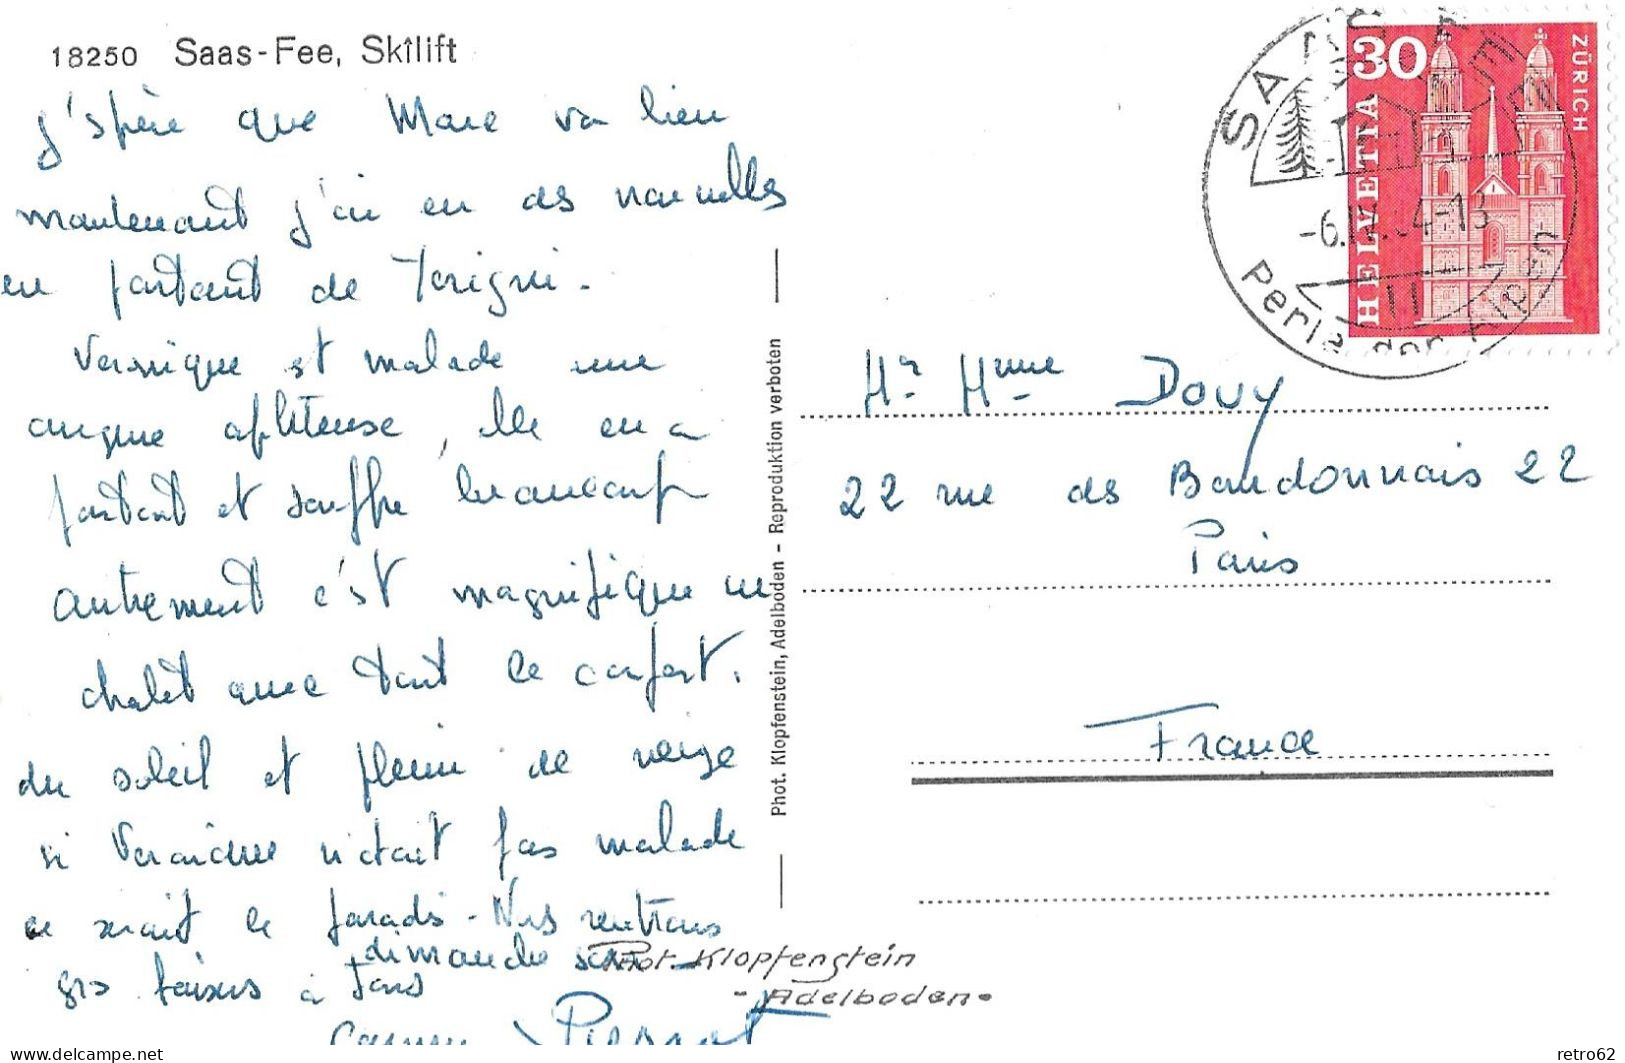 18250 Saas-Fee, Skilift
j'spère que Marc va bien
maintenant j'ai eu des nouvelles
en partant de Torigni.
Véronique est malade une
angine aphteuse, elle en a
partout et souffre beaucoup
autrement c'est magnifique un
chalet avec tout le confort.
du soleil et plein de neige
si Véronique n'était pas malade
ce serait le paradis - Nous rentrons
dimanche soir
gros baisers à tous
Pierrot
Phot. Klopfenstein, Adelboden – Reproduktion verboten
Phot. Klopfenstein
- Adelboden -
SAAS-FEE
-6.IV.64-13
Perle der Alpen
30
HELVETIA
ZÜRICH
Mr Mme Douy
22 rue des Baudonnais 22
Paris
France
https://www.delcampe.net
retro62